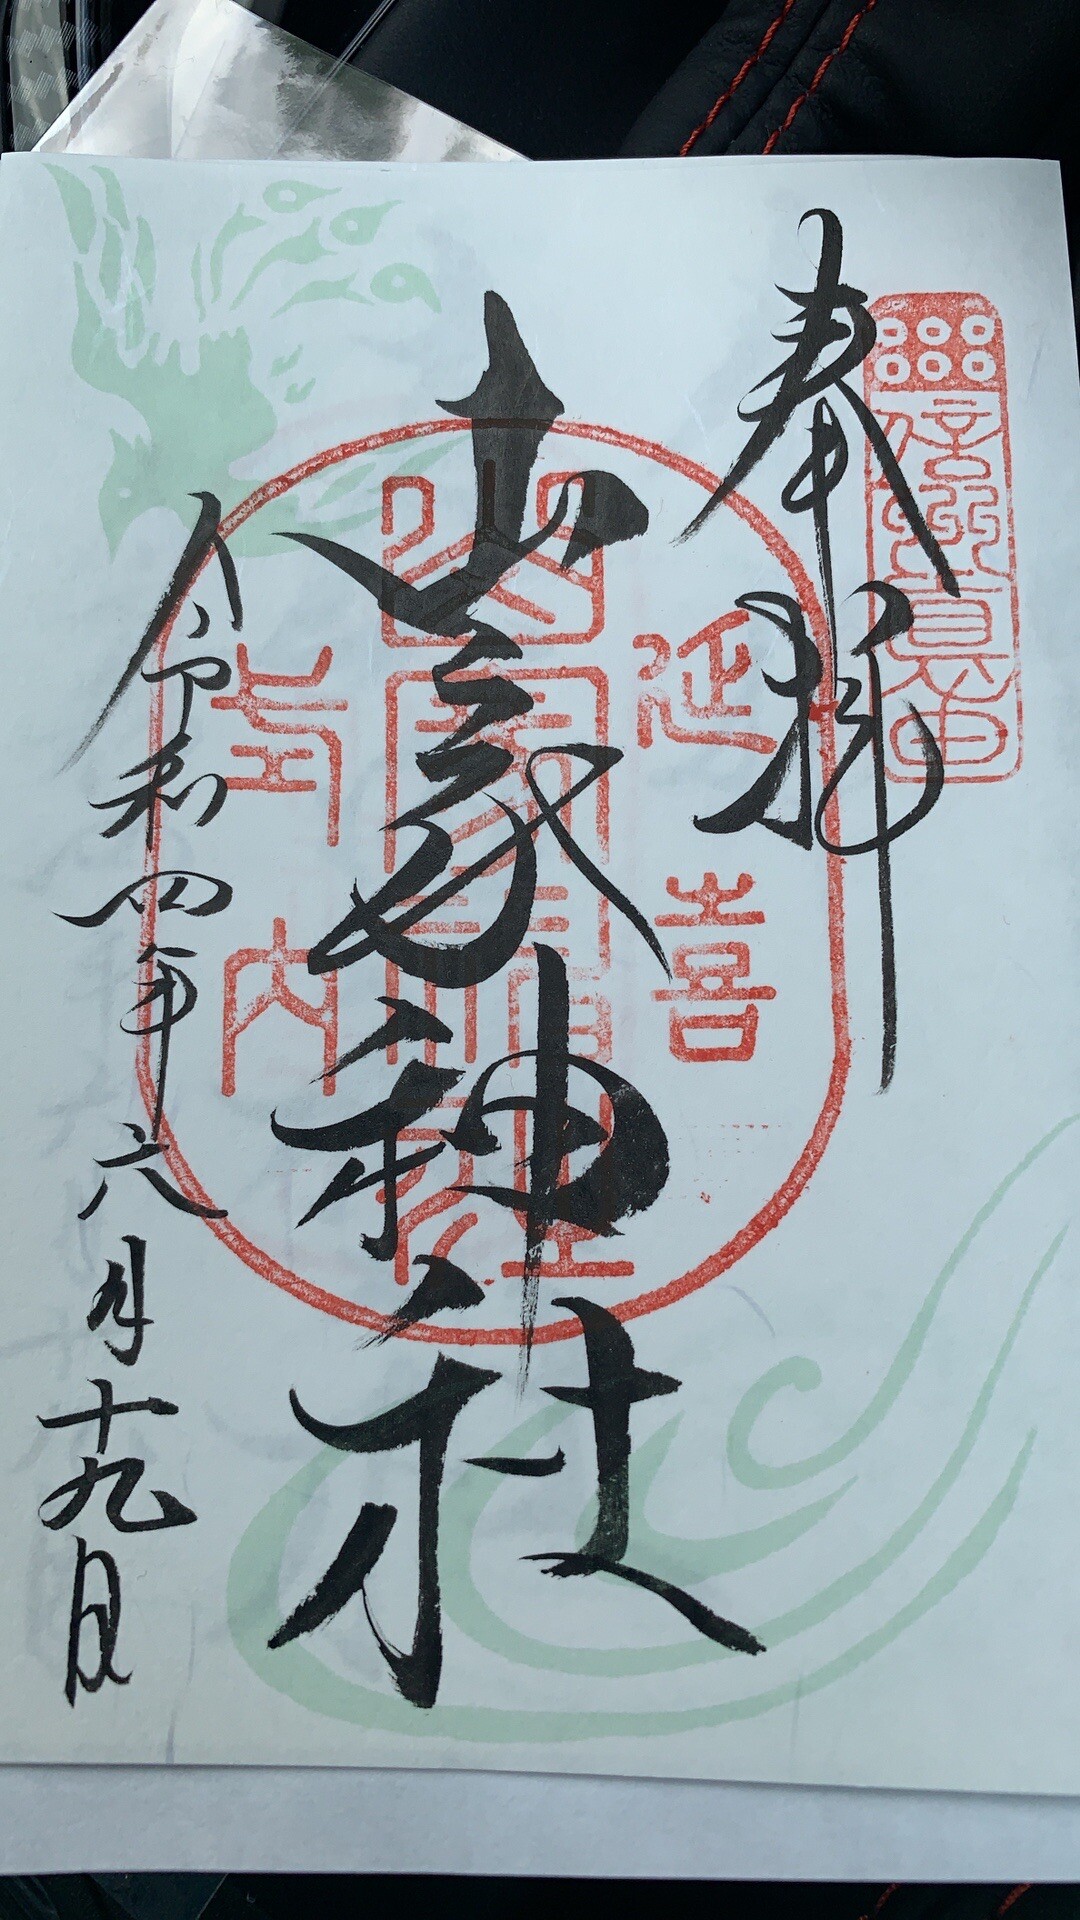 奉拝
信濃真田
山家神社
延喜
式内
山家神社
令和四年六月十九日